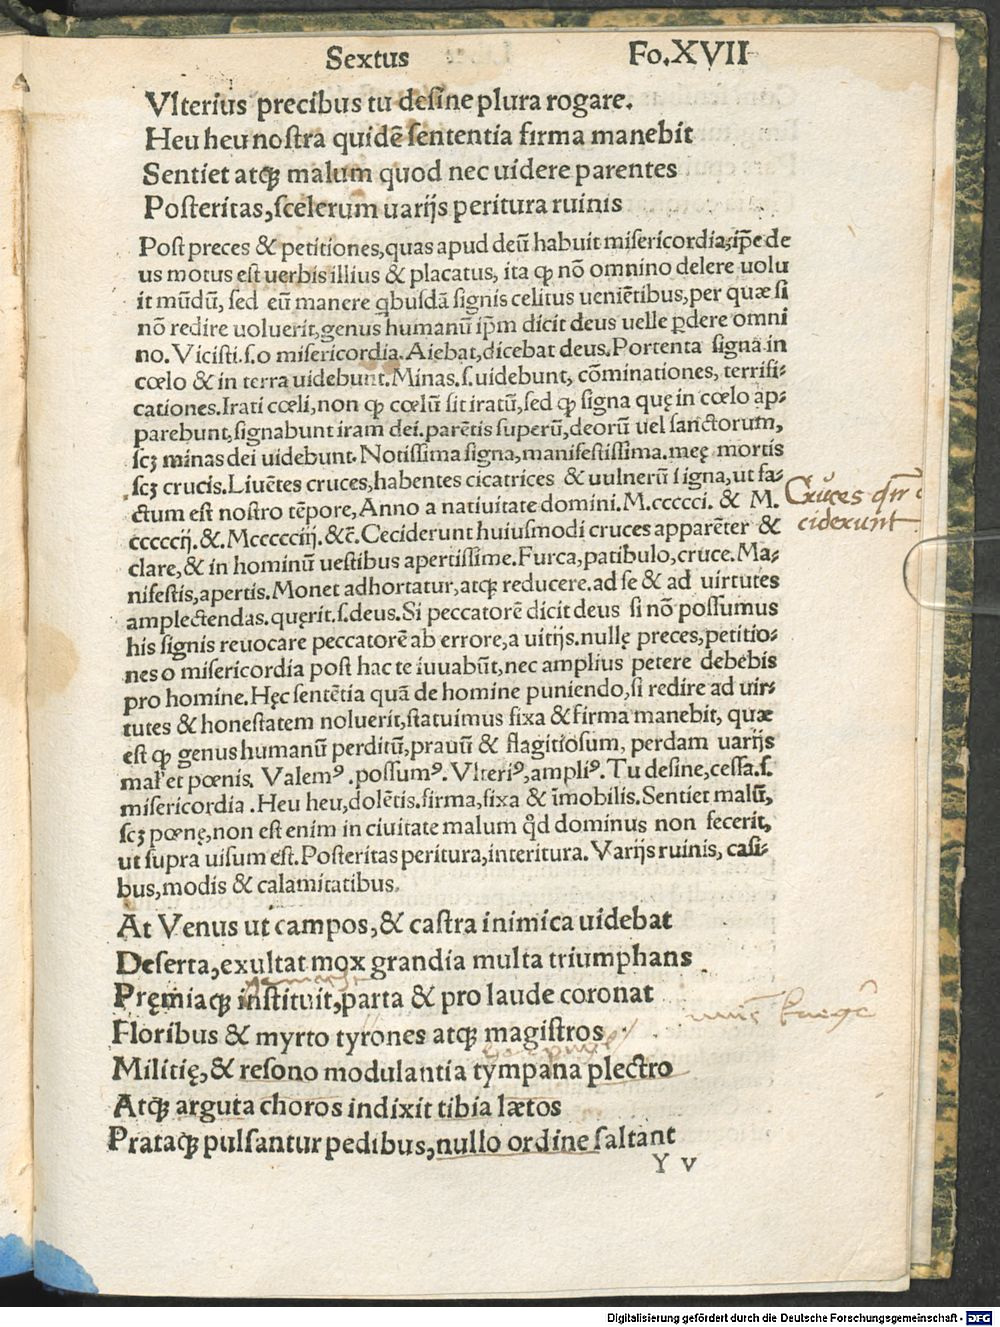 Sextus Fo.XVII
Vlterius precibus tu desine plura rogare.
Heu heu nostra quidē sententia firma manebit
Sentiet atqꝫ malum quod nec uidere parentes
Posteritas, scelerum uarijs peritura ruinis
Post preces & petitiones, quas apud deū habuit misericordia, ip̄e de
us motus est uerbis illius & placatus, ita ꝙ nō omnino delere uolu
it mūdū, sed eū manere qbusdā signis celitus ueniētibus, per quæ si
nō redire uoluerit, genus humanū ip̄m dicit deus uelle ꝑdere omni
no. Vicisti.s.o misericordia. Aiebat, dicebat deus. Portenta signa in
cœlo & in terra uidebunt. Minas.s.uidebunt, cōminationes, terrifi⸗
cationes. Irati cœli, non ꝙ cœlū sit iratū, sed ꝙ signa quę in cœlo ap⸗
parebunt, signabunt iram dei. parētis superū, deorū uel sanctorum,
scꝫ minas dei uidebunt. Notissima signa, manifestissima. meę mortis
scꝫ crucis. Liuētes cruces, habentes cicatrices & uulnerū signa, ut fa⸗
ctum est nostro tēpore, Anno a natiuitate domini. M.cccccci. & M.
ccccccij. &. Mcccccciij. &c̄. Ceciderunt huiusmodi cruces apparēter &
clare, & in hominū uestibus apertissime. Furca, patibulo, cruce. Ma⸗
nifestis, apertis. Monet adhortatur, atqꝫ reducere. ad se & ad uirtutes
amplectendas. quęrit.s.deus. Si peccatorē dicit deus si nō possumus
his signis reuocare peccatorē ab errore, a uitijs. nullę preces, petitio⸗
nes o misericordia post hac te iuuabūt, nec amplius petere debebis
pro homine. Hęc sentētia quā de homine puniendo, si redire ad uir⸗
tutes & honestatem noluerit, statuimus fixa & firma manebit, quæ
est ꝙ genus humanū perditū, prauū & flagitiosum, perdam uarijs
mal' et pœnis. Valemꝰ. possumꝰ. Vlteriꝰ, ampliꝰ. Tu desine, cessa.s.
misericordia. Heu heu, dolētis. firma, fixa & īmobilis. Sentiet malū,
scꝫ pœnę, non est enim in ciuitate malum qd̄ dominus non fecerit,
ut supra uisum est. Posteritas peritura, interitura. Varijs ruinis, casi⸗
bus, modis & calamitatibus.
Cruces
ciderunt
At Venus ut campos, & castra inimica uidebat
Deserta, exultat mox grandia multa triumphans
Pręmiaqꝫ instituit, parta & pro laude coronat
Floribus & myrto tyrones atqꝫ magistros
Militię, & resono modulantia tympana plectro
Atqꝫ arguta choros indixit tibia lætos
Prataqꝫ pulsantur pedibus, nullo ordine saltant
Y v
Digitalisierung gefördert durch die Deutsche Forschungsgemeinschaft - DFG